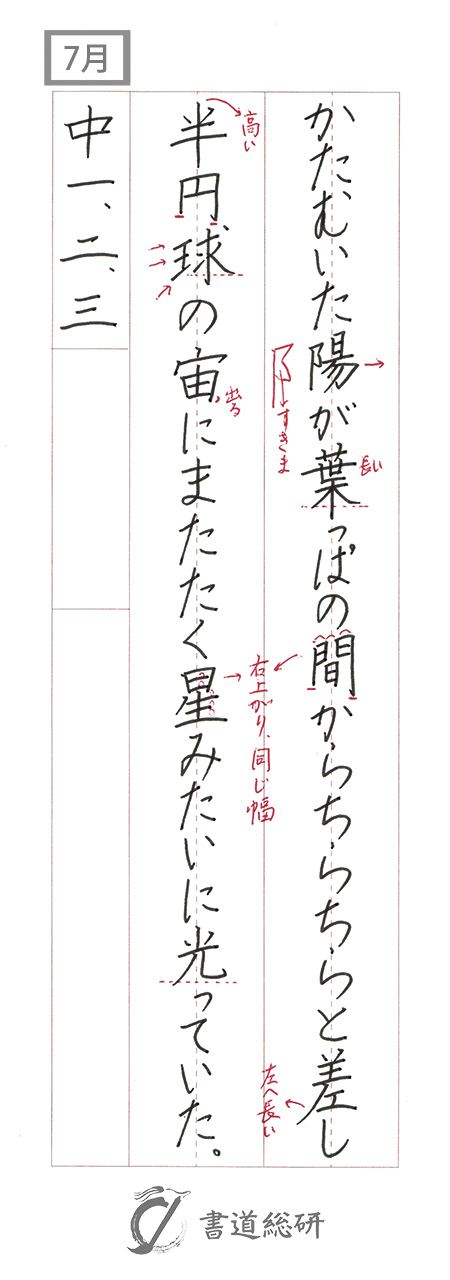 7月
かたむいた陽が葉っぱの間からちらちらと差し
半円球の宙にまたたく星みたいに光っていた。
中一、二、三
高い
出る
すきま
長い
右上がり、同じ幅
左へ長い
書道総研